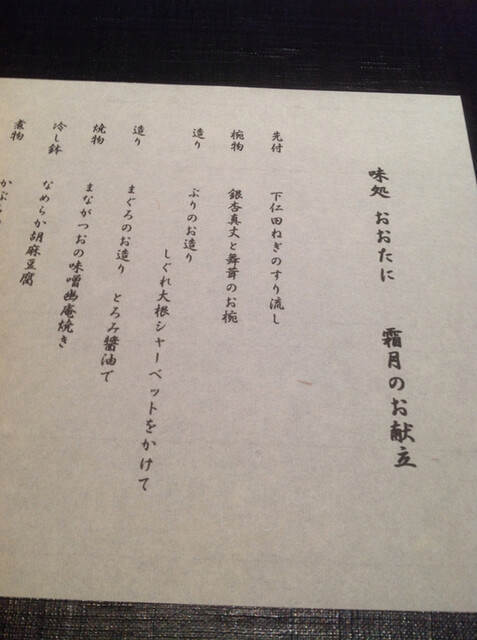 味処 おおたに 霜月のお献立
先付 下仁田ねぎのすり流し
椀物 銀杏真丈と舞茸のお椀
造り ぶりのお造り
しぐれ大根シャーベットをかけて
造り まぐろのお造り とろみ醬油で
焼物 まながつおの味噌幽庵焼き
冷し鉢 なめらか胡麻豆腐
煮物 かぶら